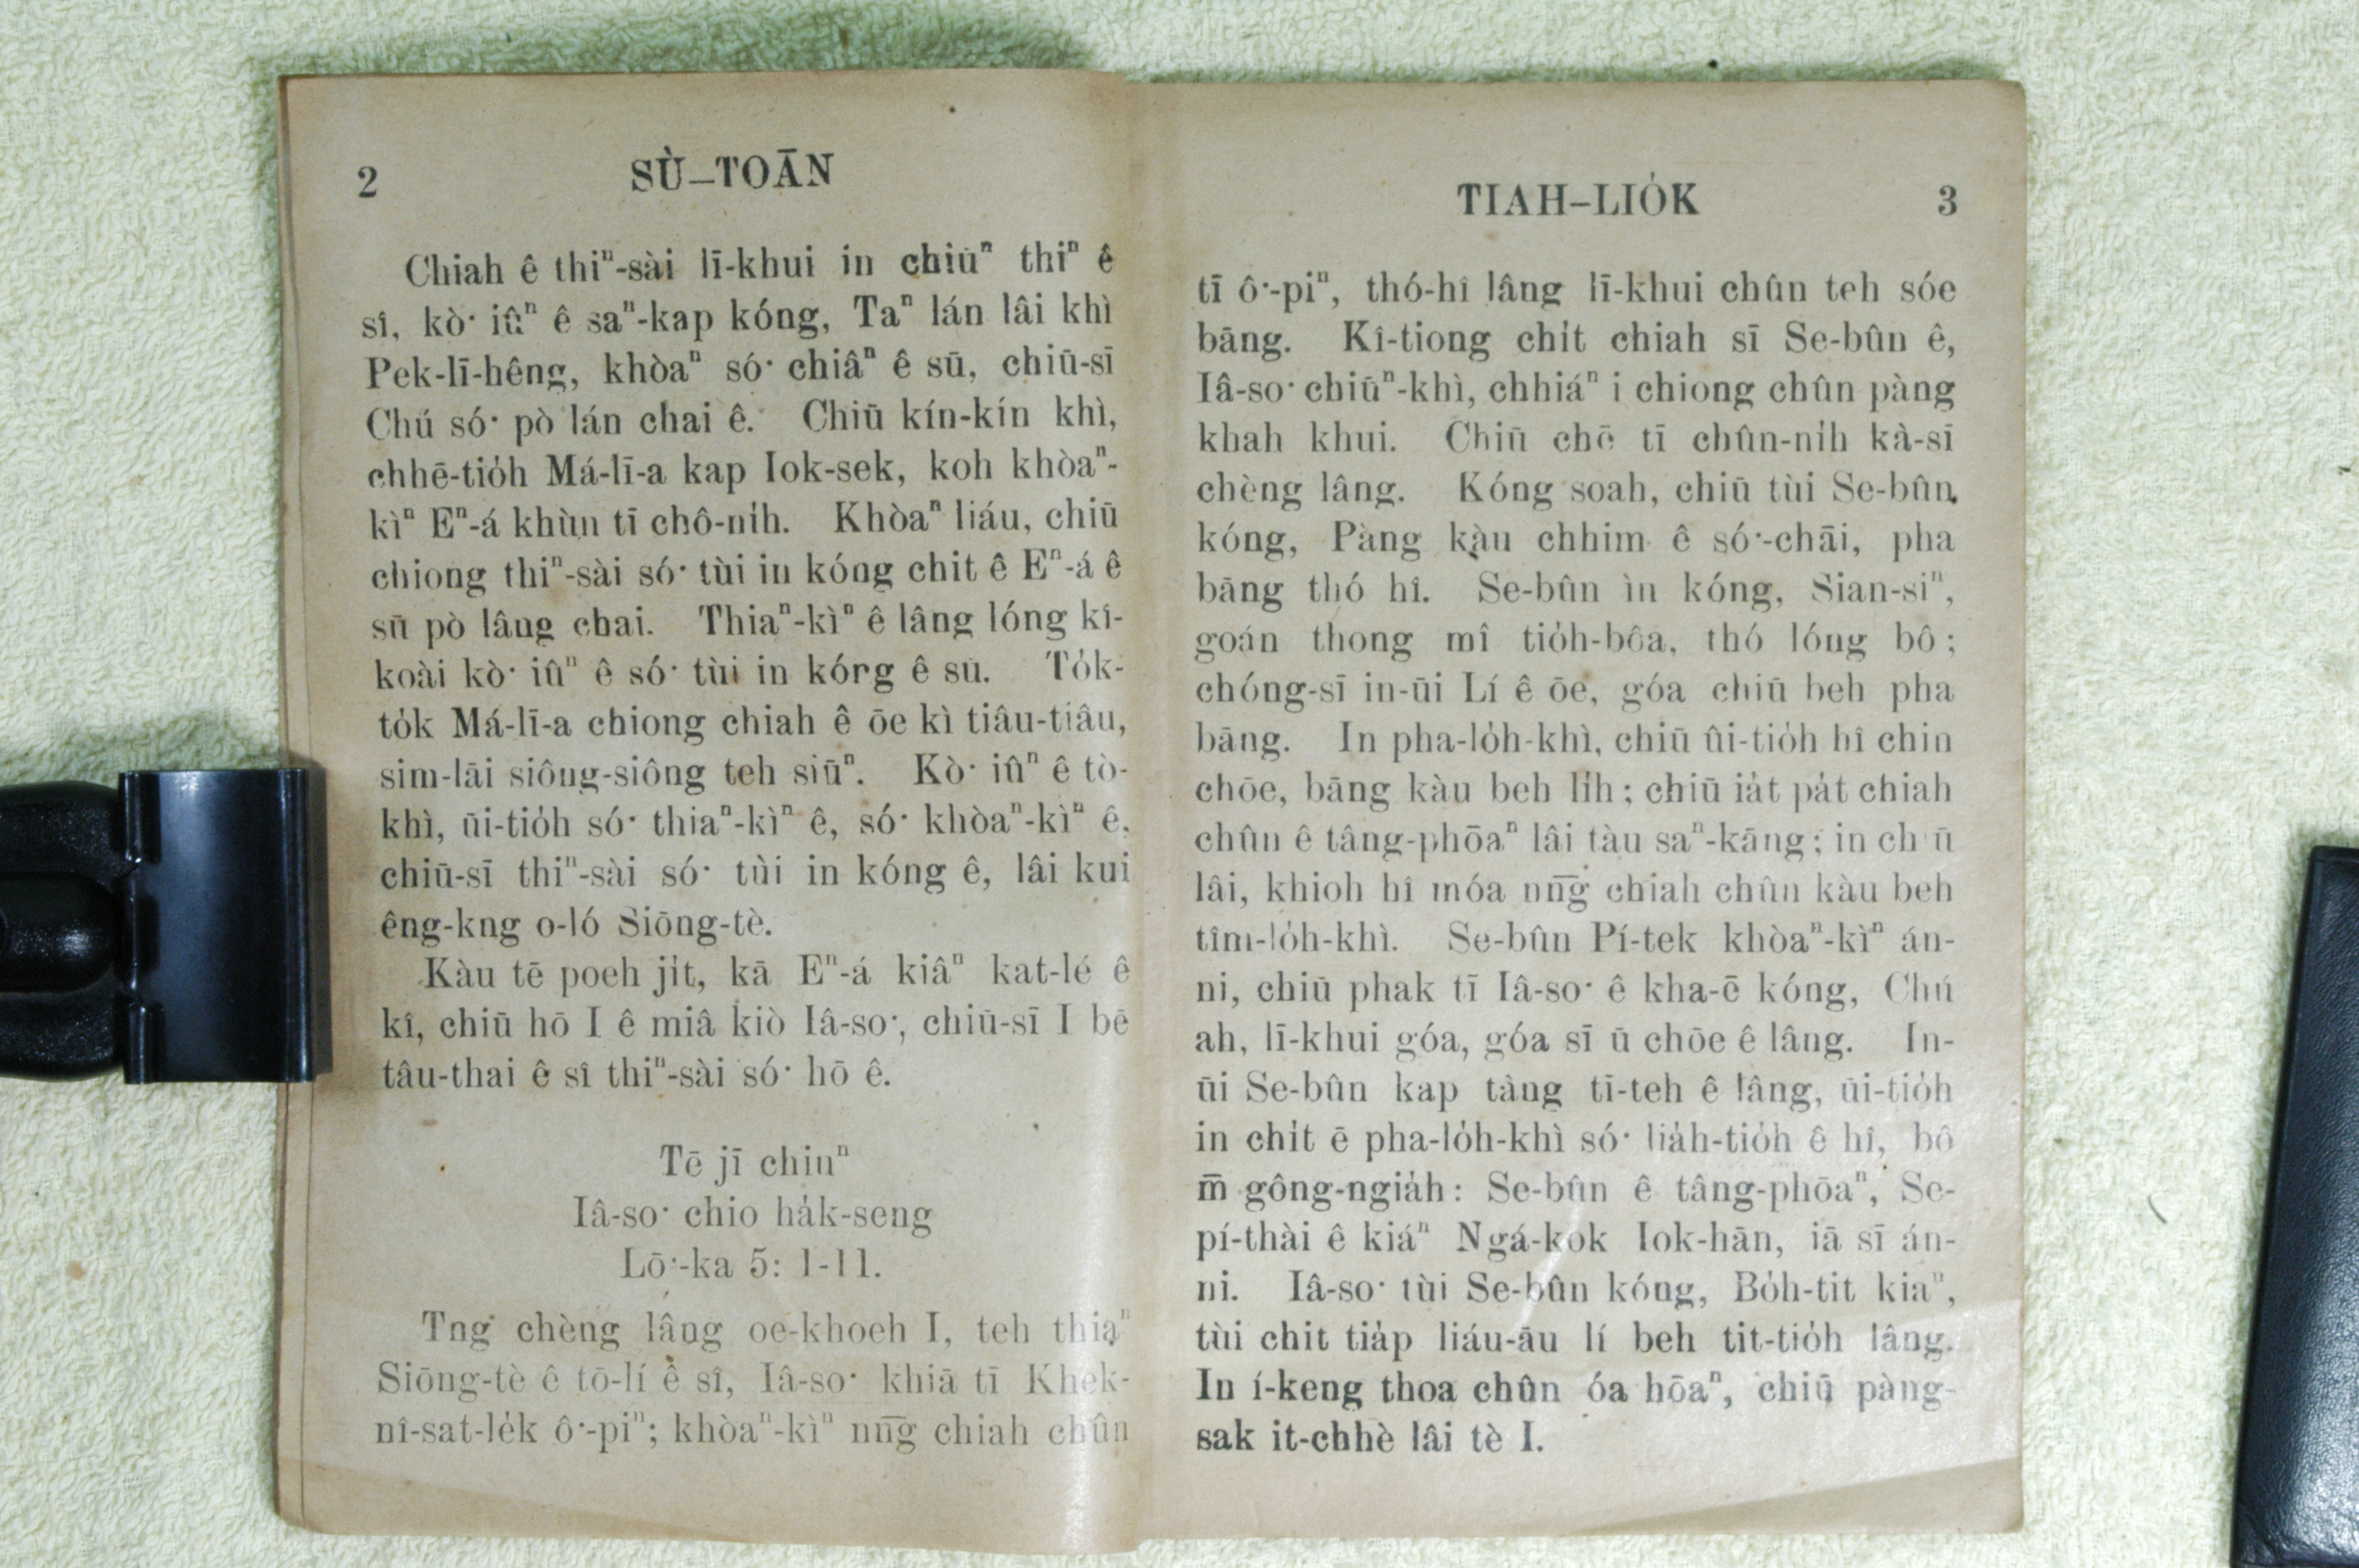 2 SÙ–TOĀN
Chiah ê thiⁿ-sài lī-khui in chiūⁿ thiⁿ ê
sî, kò͘ iûⁿ ê saⁿ-kap kóng, Taⁿ lán lâi khì
Pek-lī-hêng, khòaⁿ só͘ chiâⁿ ê sū, chiū-sī
Chú só͘ pò lán chai ê. Chiū kín-kín khì,
chhē-tio̍h Má-lī-a kap Iok-sek, koh khòaⁿ-
kìⁿ Eⁿ-á khùn tī chô-ni̍h. Khòaⁿ liáu, chiū
chiong thiⁿ-sài só͘ tùi in kóng chit ê Eⁿ-á ê
sū pò lâng chai. Thiaⁿ-kìⁿ ê lâng lóng kî-
koài kò͘ iûⁿ ê só͘ tùi in kóng ê sū. To̍k-
to̍k Má-lī-a chiong chiah ê ōe kì tiâu-tiâu,
sim-lāi siông-siông teh siūⁿ. Kò͘ iûⁿ ê tò-
khì, ūi-tio̍h só͘ thiaⁿ-kìⁿ ê, só͘ khòaⁿ-kìⁿ ê,
chiū-sī thiⁿ-sài só͘ tùi in kóng ê, lâi kui
êng-kng o-ló Siōng-tè.
Kàu tē poeh ji̍t, kā Eⁿ-á kiâⁿ kat-lé ê
kî, chiū hō I ê miâ kiò Iâ-so͘, chiū-sī I bē
tâu-thai ê sî thiⁿ-sài só͘ hō ê.
Tē jī chiuⁿ
Iâ-so͘ chio ha̍k-seng
Lō͘-ka 5: 1-11.
Tng chèng lâng oe-khoeh I, teh thiaⁿ
Siōng-tè ê tō-lí ê sî, Iâ-so͘ khiā tī Khek-
nî-sat-le̍k ô͘-piⁿ; khòaⁿ-kìⁿ nn̄g chiah chûn
TIAH–LIO̍K 3
tī ô͘-piⁿ, thó-hî lâng lī-khui chûn teh sóe
bāng. Kî-tiong chi̍t chiah sī Se-bûn ê,
Iâ-so͘ chiūⁿ-khì, chhiáⁿ i chiong chûn pàng
khah khui. Chiū chē tī chûn-ni̍h kà-sī
chèng lâng. Kóng soah, chiū tùi Se-bûn
kóng, Pàng kàu chhim ê só͘-chāi, pha
bāng thó hî. Se-bûn ìn kóng, Sian-siⁿ,
goán thong mî tio̍h-bôa, thó lóng bô;
chóng-sī in-ūi Lí ê ōe, góa chiū beh pha
bāng. In pha-lo̍h-khì, chiū ûi-tio̍h hî chin
chōe, bāng kàu beh li̍h; chiū ia̍t pa̍t chiah
chûn ê tâng-phōaⁿ lâi tàu saⁿ-kāng; in chiū
lâi, khioh hî móa nn̄g chiah chûn kàu beh
tîm-lo̍h-khì. Se-bûn Pí-tek khòaⁿ-kìⁿ án-
ni, chiū phak tī Iâ-so͘ ê kha-ē kóng, Chú
ah, lī-khui góa, góa sī ū chōe ê lâng. In-
ūi Se-bûn kap tàng tī-teh ê lâng, ūi-tio̍h
in chi̍t ē pha-lo̍h-khì só͘ lia̍h-tio̍h ê hî, bô
m̄ gông-ngia̍h: Se-bûn ê tâng-phōaⁿ, Se-
pí-thài ê kiáⁿ Ngá-kok Iok-hān, iā sī án-
ni. Iâ-so͘ tùi Se-bûn kóng, Bo̍h-tit kiaⁿ,
tùi chit tia̍p liáu-āu lí beh tit-tio̍h lâng.
In í-keng thoa chûn óa hōaⁿ, chiū pàng-
sak it-chhè lâi tè I.